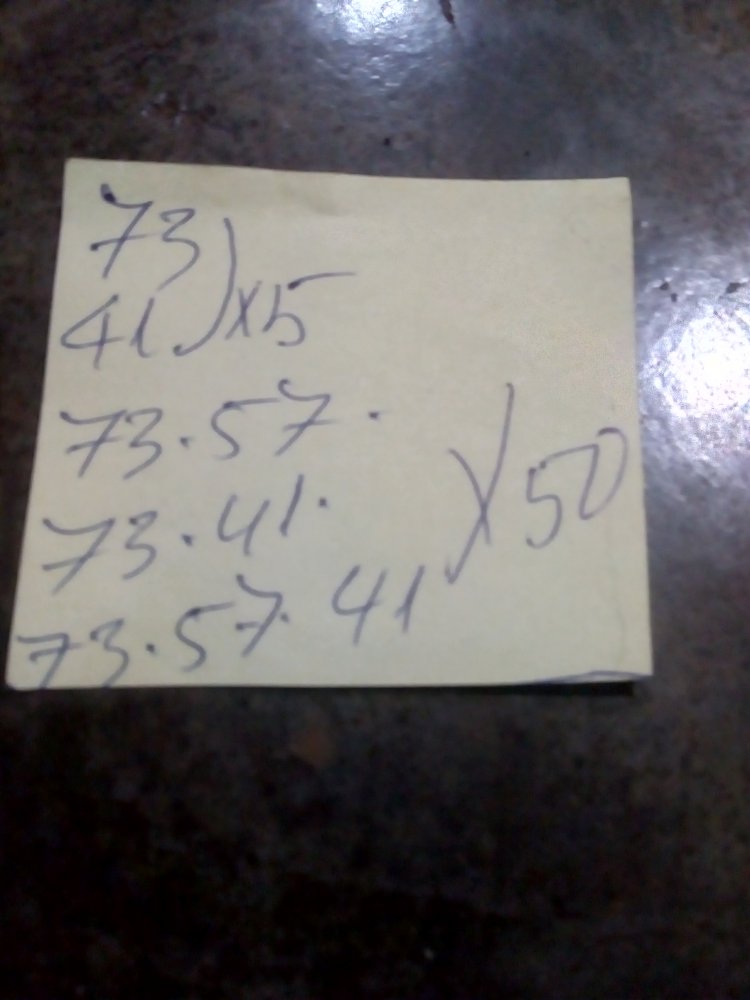 73
41) x5
73.57.
73.41.
x50
73.57.41